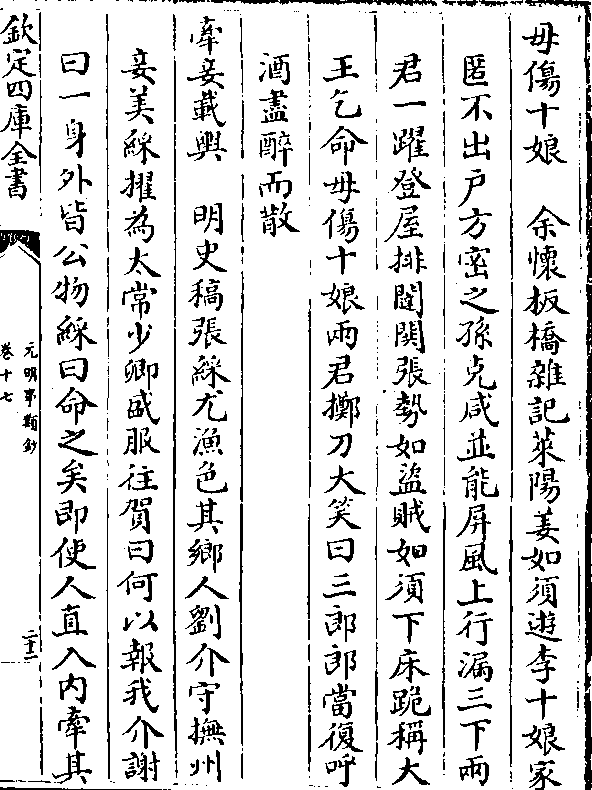 毋傷十娘　余懷板橋雜記萊陽姜如須遊李十娘家
匿不出戸方密之孫克咸並能屏風上行漏三下兩
君一躍登屋排闥闖張勢如盜賊如須下床跪稱大
王乞命毋傷十娘兩君擲刀大笑曰三郎郎當復呼
酒盡醉而散
牽妾載輿　明史稿張綵尤漁色其鄉人劉介守撫州
妾美綵擢為太常少卿盛服往賀曰何以報我介謝
曰一身外皆公物綵曰命之矣即使人直入内牽其
欽定四庫全書
元明事類鈔
卷十七
二十二